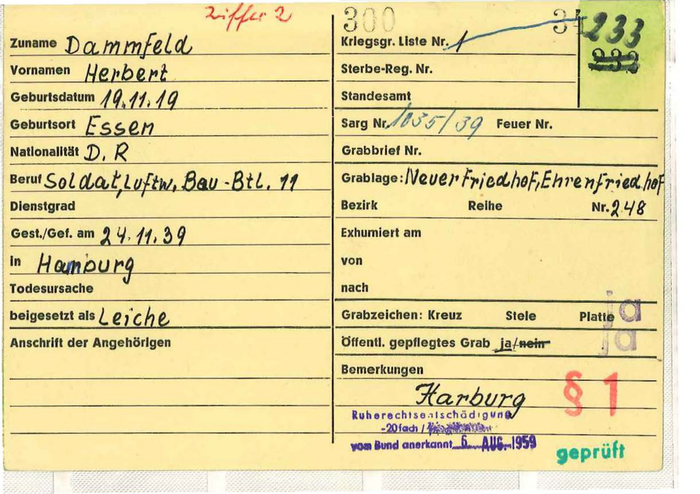 Ziffer 2
300
34
233
232
Zuname Dammfeld
Vornamen Herbert
Geburtsdatum 19.11.19
Geburtsort Essen
Nationalität D.R
Beruf Soldat, Luftw. Bau-Btl. 11
Dienstgrad
Gest./Gef. am 24.11.39
in Hamburg
Todesursache
beigesetzt als Leiche
Anschrift der Angehörigen
Kriegsgr. Liste Nr. 1
Sterbe-Reg. Nr.
Standesamt
Sarg Nr. 1035/39 Feuer Nr.
Grabbrief Nr.
Grablage: Neuer Friedhof, Ehrenfriedhof
Bezirk Reihe Nr. 248
Exhumiert am
von
nach
Grabzeichen: Kreuz Stele Platte ja
Öffentl. gepflegtes Grab ja/nein ja
Bemerkungen
Harburg
§ 1
Ruherechtsentschädigung
-20fach /
vom Bund anerkannt 6. AUG. 1959
geprüft